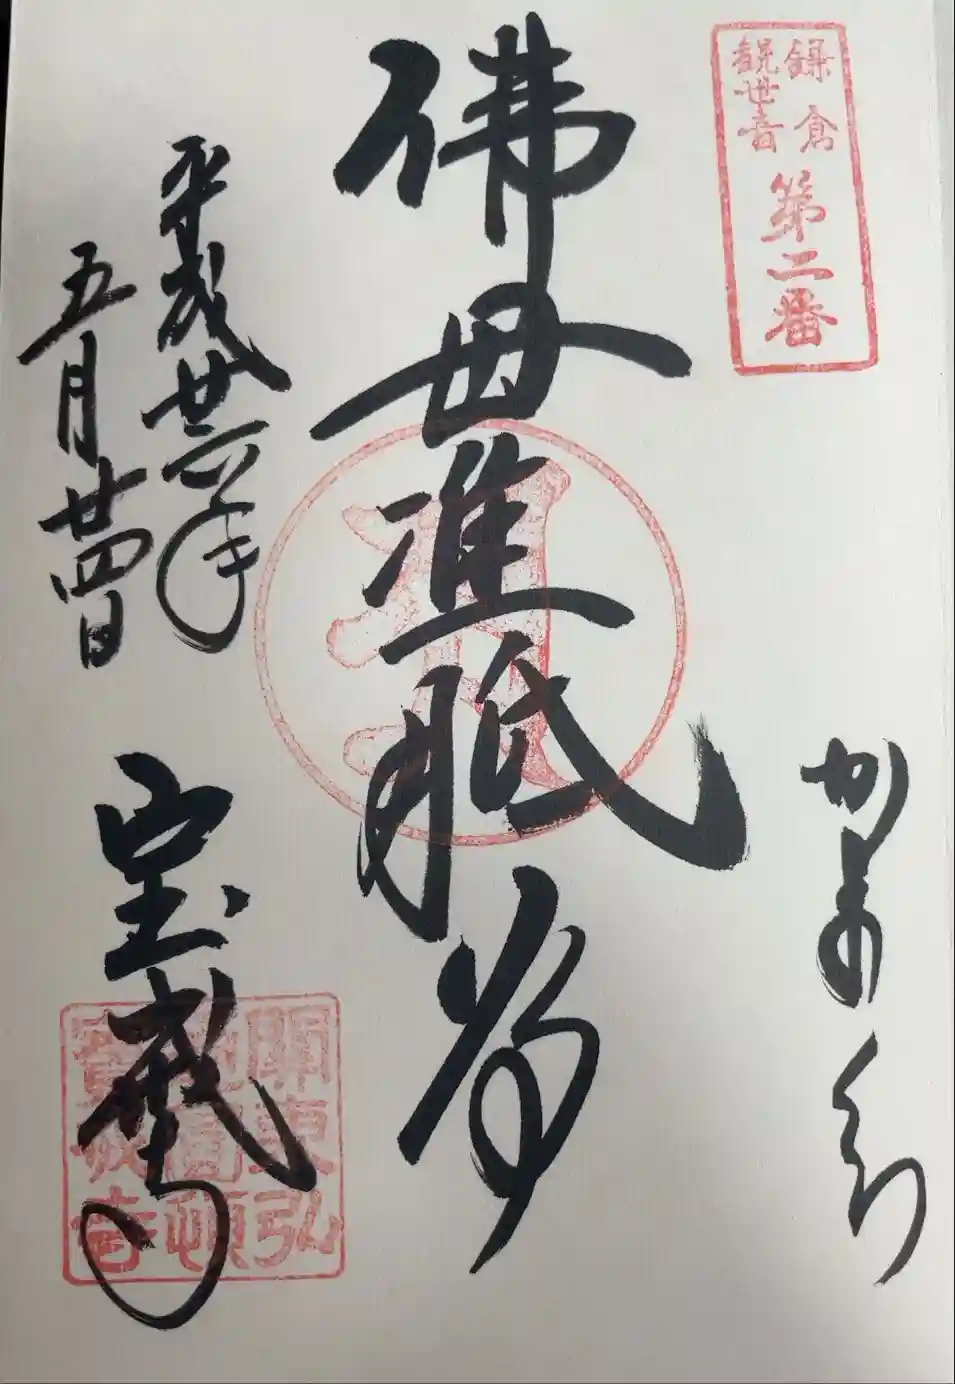 鎌倉
観世音
第二番
かまくら
佛母准胝尊
平成廿六年
五月廿四日
宝戒寺
關東弘
圓頓
寶戒寺